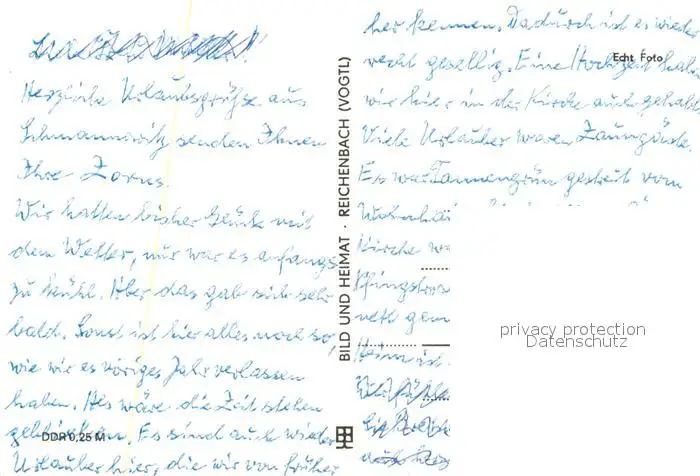 Herzliche Urlaubsgrüße aus
senden Ihnen
Ihre Zorns.
Wir hatten bisher Glück mit
dem Wetter, nur war es anfangs
zu kühl. Aber das gab sich sehr
bald. Sonst ist hier alles noch so,
wie wir es voriges Jahr verlassen
haben. Als wäre die Zeit stehen
geblieben. Es sind auch wieder
Urlauber hier, die wir von früher
DDR 0,25 M
BILD UND HEIMAT · REICHENBACH (VOGTL)
her kennen. Dadurch ist es wieder
recht gesellig. Eine Hochzeit
Echt Foto
wir hier in der Kirche auch
Viele Urlauber waren Zaungäste.
Es war Tannengrün gestreut vom
Kirche
Heim ist
privacy protection
Datenschutz